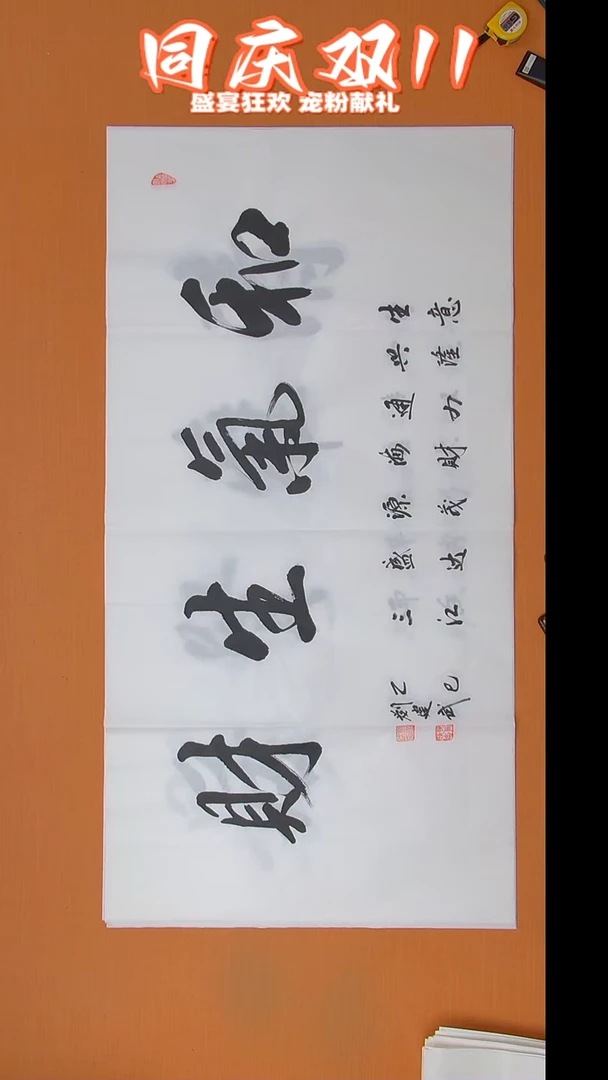 同庆双11
盛宴狂欢 宠粉献礼
和氣生財
生意
兴隆
通四
海财
源茂
盛达
三江
乙巳
劉建武